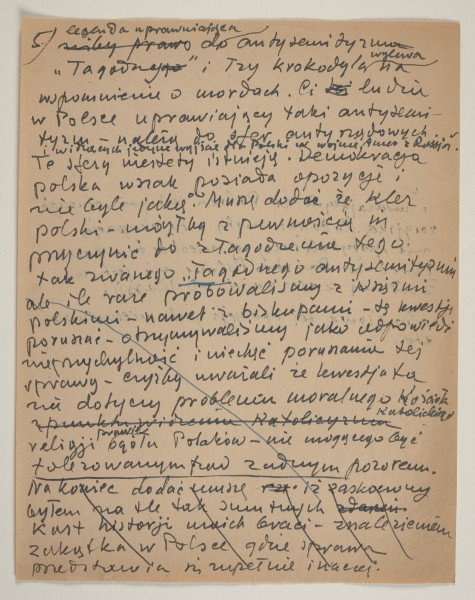 legenda uprawniająca
5.) ~~niby prawo~~ do antysemityzmu
"Tagodnego" i łzy krokodyla wylewa na
wspomnienie o mordach. Ci ludzie
w Polsce uprawiający taki antysemi-
tyzm – należą do sfer antyrządowych
i widzących jedyne wyjście dla Polski na wojnie Amer. z Rosją.
Te sfery niestety istnieją. Demokracja
polska wszak posiada opozycję i
nie byle jaką. Muszę dodać że kler
polski – mógłby z pewnością się
przyczynić do złagodzenia tego
tak zwanego "łagodnego antysemityzmu"
ale – ile razy próbowaliśmy z księżmi
polskimi – nawet z biskupami – tę kwestję
poruszać – otrzymywaliśmy jako odpowiedź
nieprzychylność i niechęć poruszania tej
sprawy – czyżby uważali że kwestja ta
nie dotyczy problemu moralnego Kościoła
Katolickiego
~~z punktu widzenia Katolicyzmu~~
religji prawie ogółu Polaków – nie mogącego być
tolerowanym pod żadnym pozorem.
Na koniec dodać muszę iż zaskoczony
byłem na tle tak smutnych ~~zdarzeń~~
kart historji moich braci – znalezieniem
zakątka w Polsce gdzie sprawa
przedstawia się zupełnie inaczej.